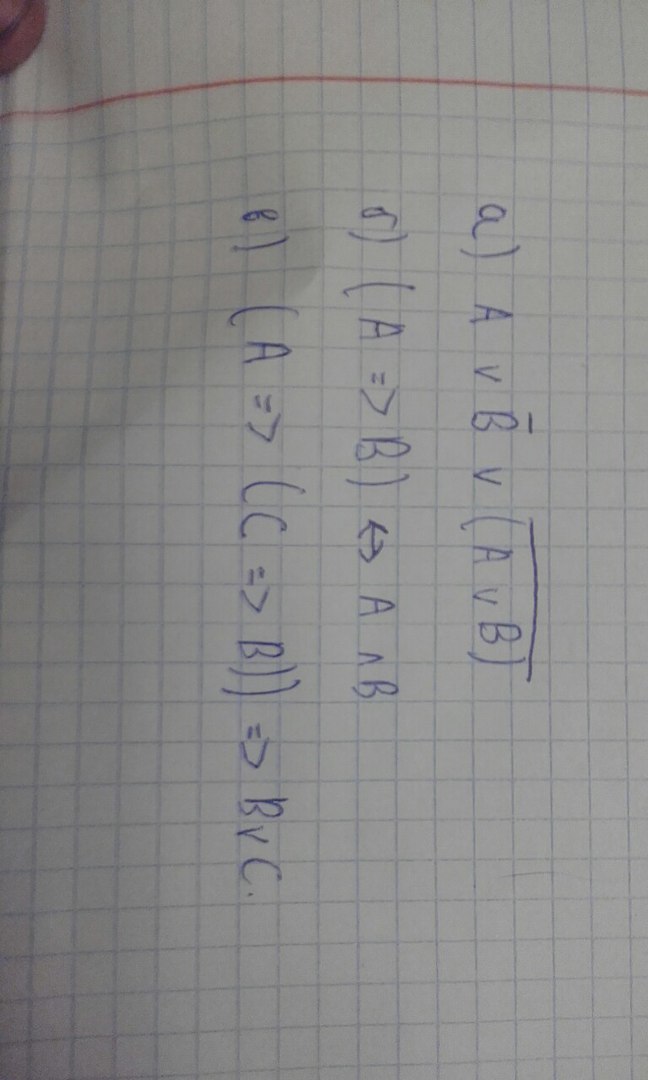 а) A ∨ B̅ ∨ (A̅ ̅∨̅ ̅B̅)
б) (A => B) <=> A ∧ B
в) (A => (C => B)) => B ∨ C.